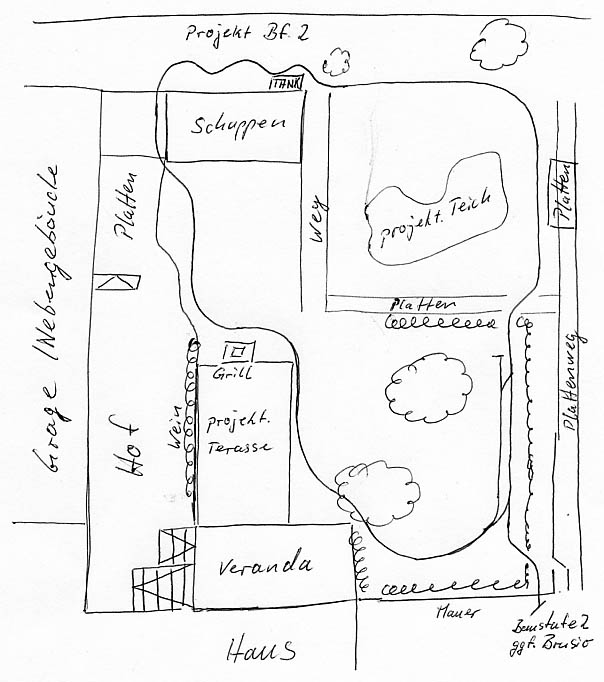 Projekt Bf. 2
TANK
Schuppen
Garage / Nebengebäude
Platten
Weg
projekt. Teich
Platten
Platten
Plattenweg
Grill
Hof
Wein
projekt.
Terasse
Veranda
Mauer
Baustufe 2
ggf. Brusio
Haus